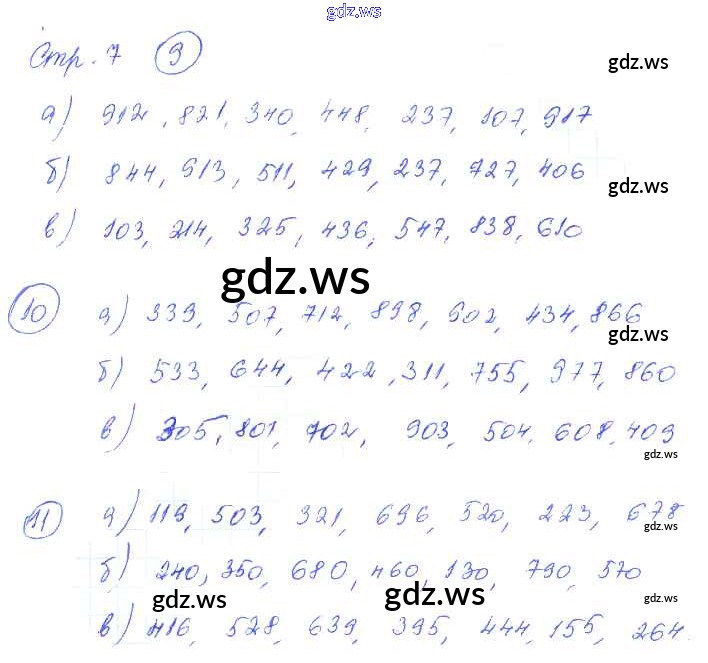 gdz.ws
Стр. 7 9
gdz.ws
а) 912, 821, 340, 448, 237, 107, 917
б) 844, 913, 511, 429, 237, 727, 406
gdz.ws
в) 103, 214, 325, 436, 547, 838, 610
gdz.ws
10 а) 339, 507, 712, 898, 902, 434, 866
gdz.ws
б) 533, 644, 422, 311, 755, 977, 860
в) 305, 801, 702, 903, 504, 608, 409
gdz.ws
11 а) 119, 503, 321, 696, 520, 223, 678
gdz.ws
б) 240, 350, 680, 460, 130, 790, 570
gdz.ws gdz.ws gdz.ws
в) 416, 528, 639, 395, 444, 155, 264.
gdz.ws